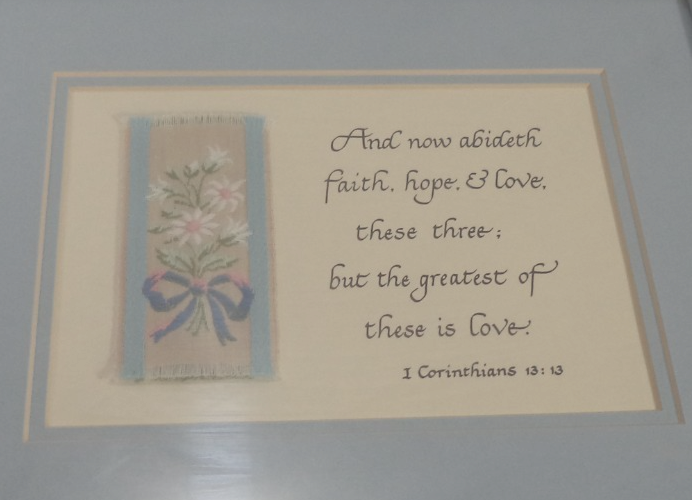 And now abideth
faith, hope, & love,
these three;
but the greatest of
these is love.
I Corinthians 13:13